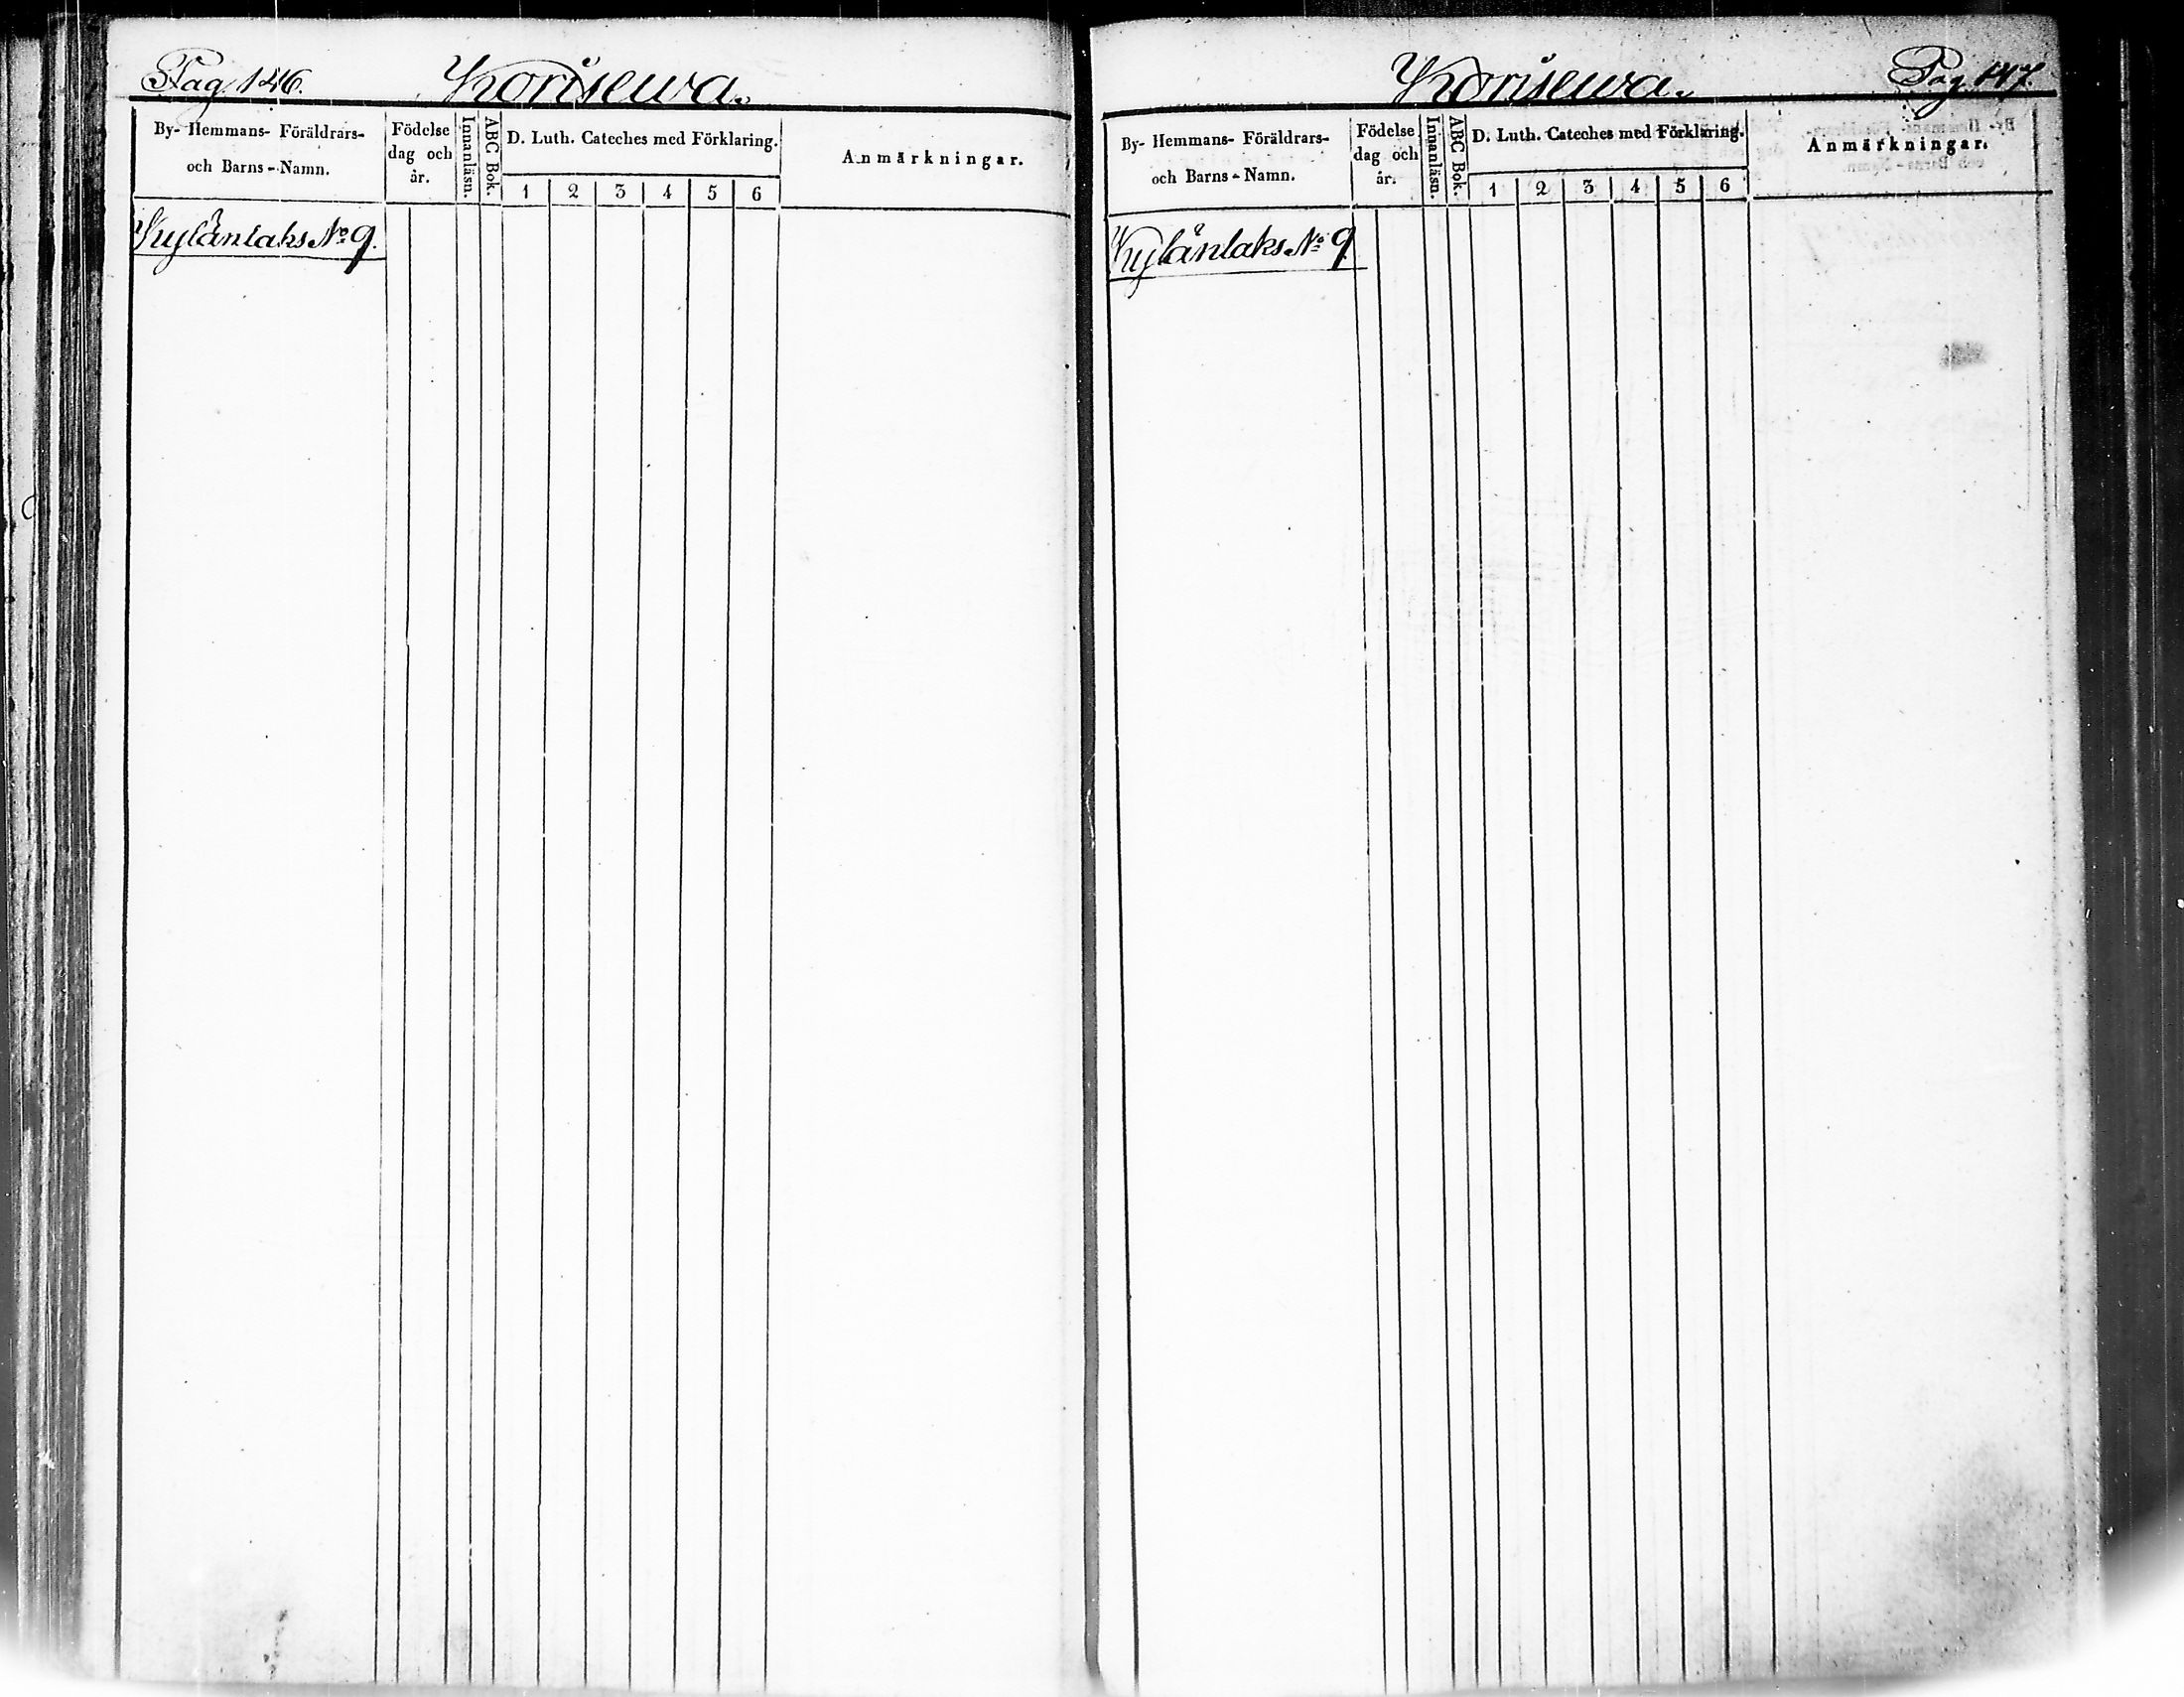 Pag. 146.
Korisewa.
By- Hemmans- Föräldrars-
och Barns - Namn.
Födelse
dag och
år.
Innanläsn.
ABC Bok.
D. Luth. Cateches med Förklaring.
1 2 3 4 5 6
Anmärkningar.
Kylänlaks No 9.
Korisewa.
Pag. 147.
By- Hemmans- Föräldrars-
och Barns - Namn.
Födelse
dag och
år.
Innanläsn.
ABC Bok.
D. Luth. Cateches med Förklaring.
1 2 3 4 5 6
Anmärkningar.
Kylänlaks No 9.